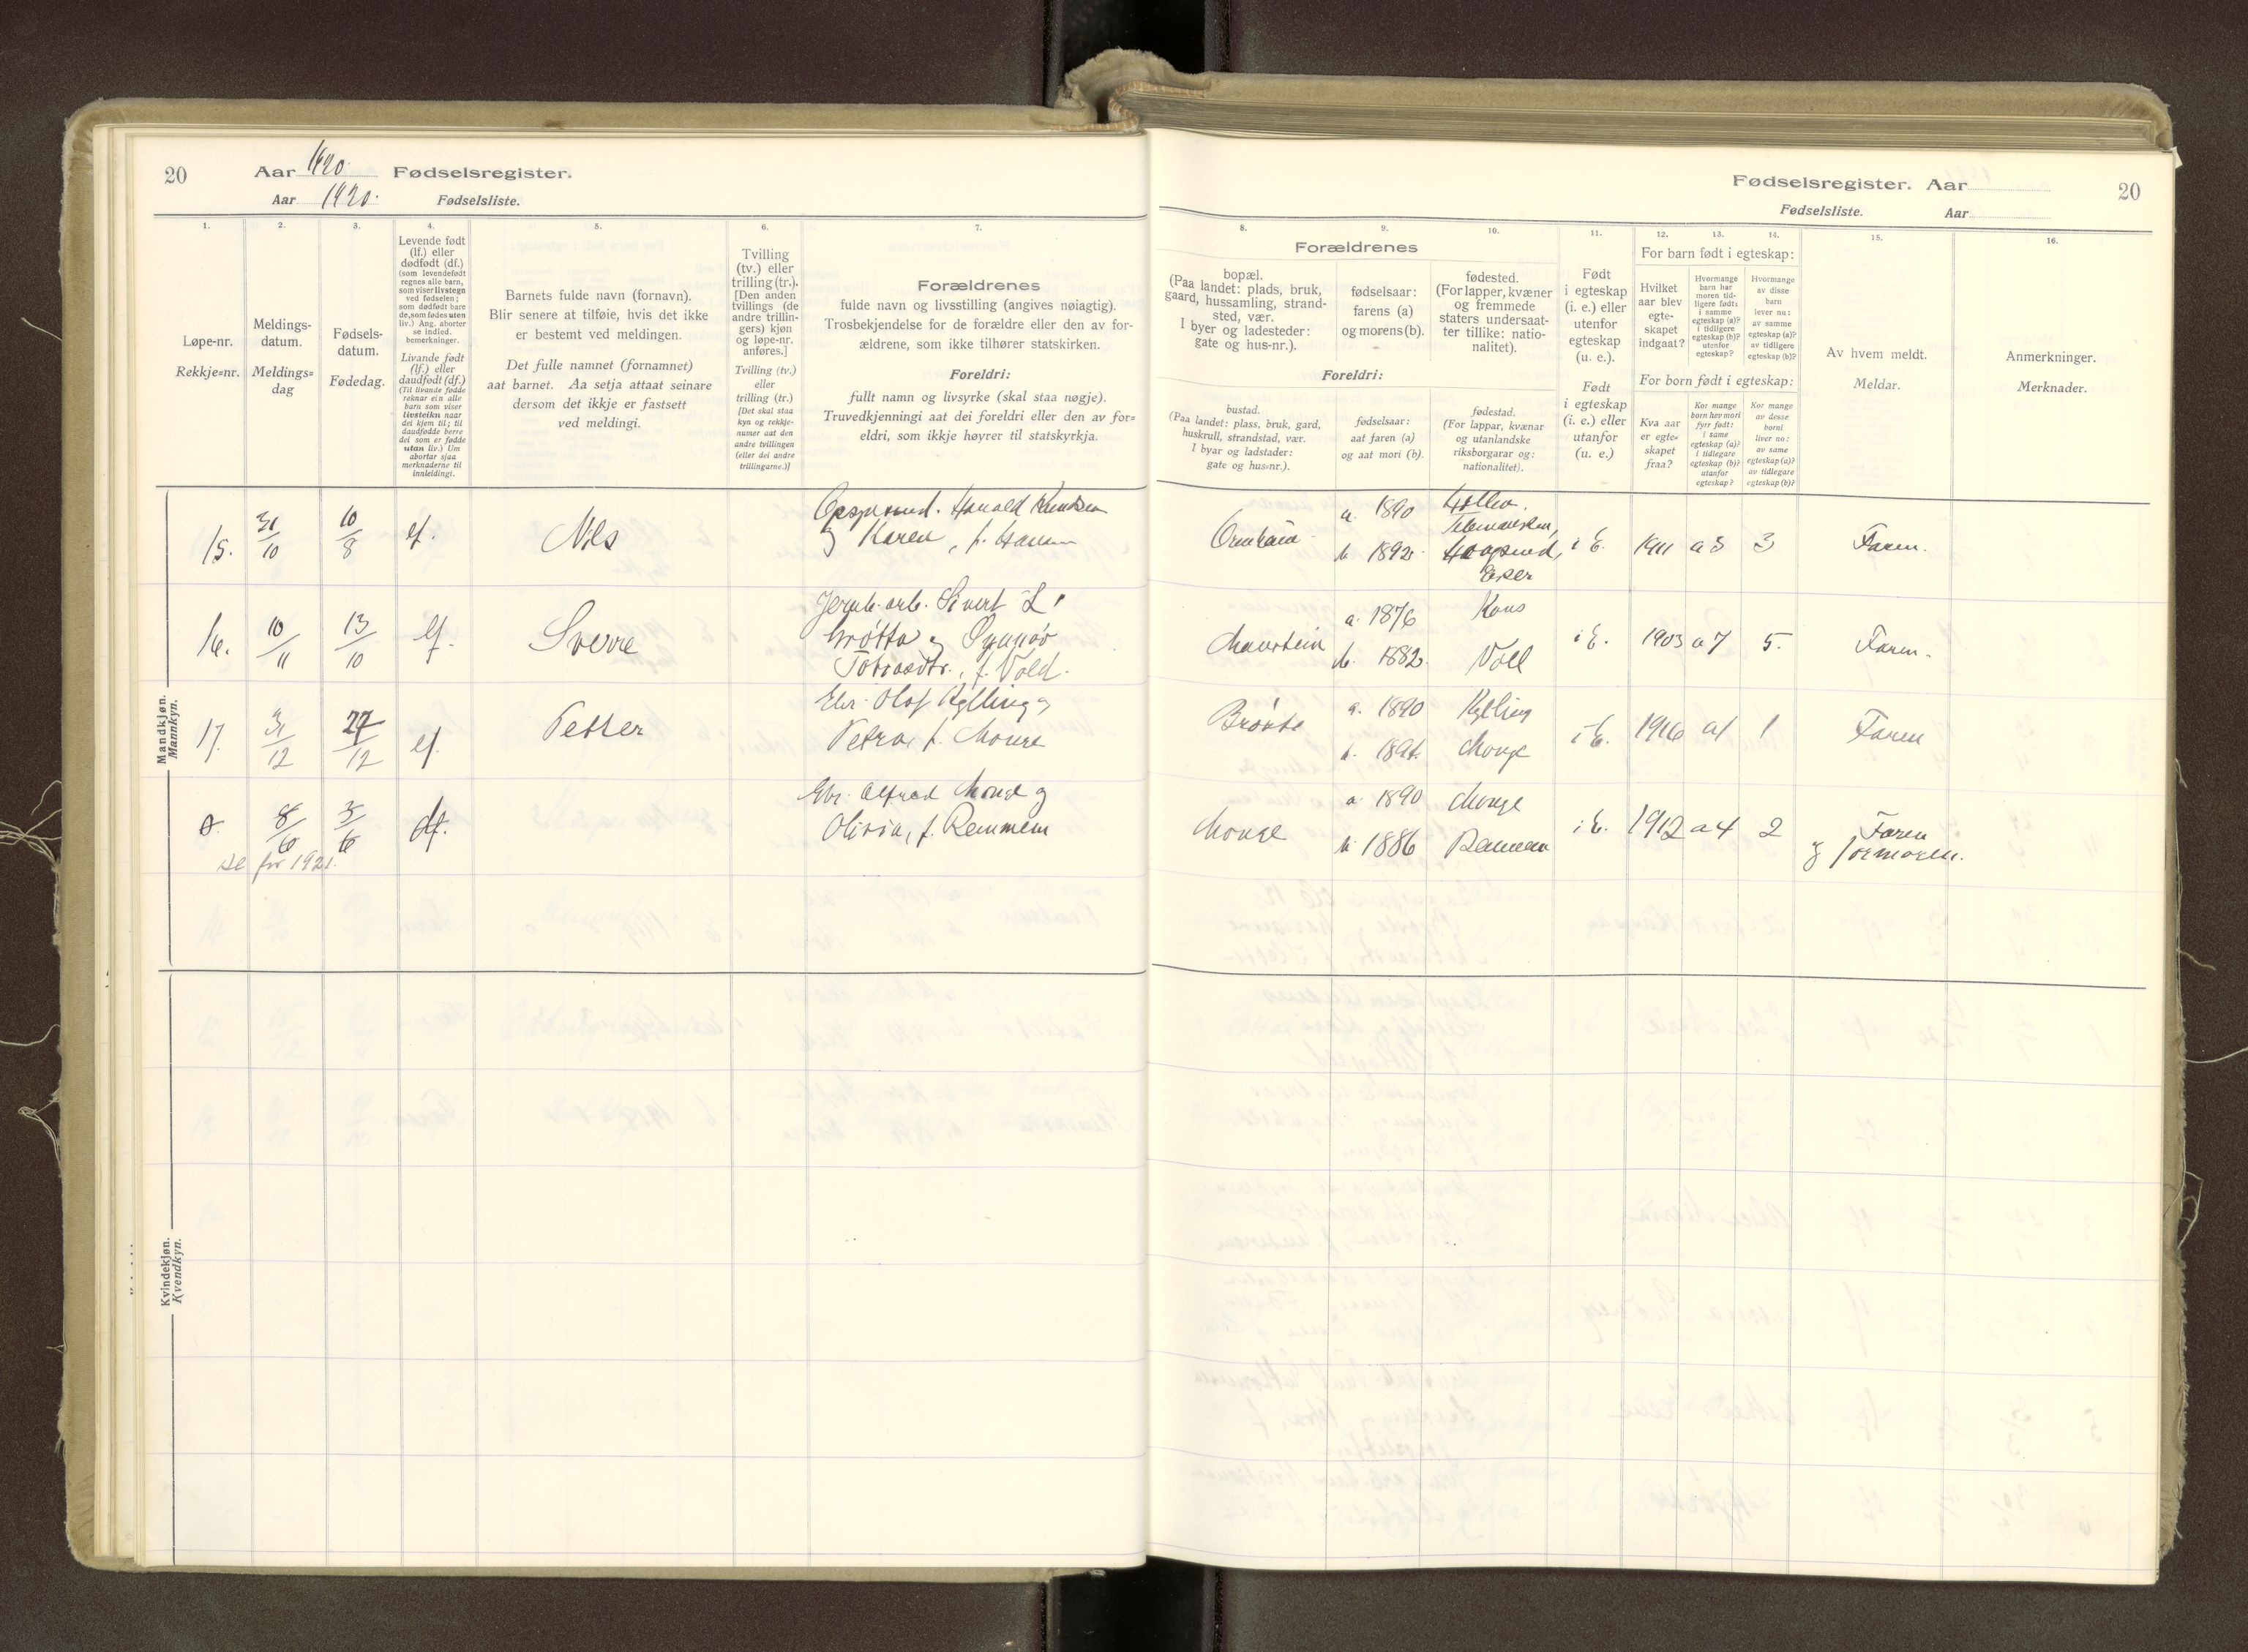 20
Aar 1920. Fødselsregister.
Aar 1920. Fødselsliste.
1.
2.
3.
4.
5.
6.
7.
Løpe-nr.
Rekkje=nr.
Meldings-
datum.
Meldings=
dag
Fødsels-
datum.
Fødedag.
Levende født
(lf.) eller
dødfødt (df.)
(som levendefødt
regnes alle barn,
som viser livstegn
ved fødselen;
som dødfødt bare
de, som fødes uten
liv.) Ang. aborter
se indled.
bemerkninger.
Livande født
(lf.) eller
daudfødt (df.)
(Til livande fødde
reknar ein alle
barn som viser
livsteikn naar
dei kjem til; til
daudfødde berre
dei som er fødde
utan liv.) Um
abortar sjaa
merknaderne til
innleidingi.
Barnets fulde navn (fornavn).
Blir senere at tilføie, hvis det ikke
er bestemt ved meldingen.
Det fulle namnet (fornamnet)
aat barnet. Aa setja attaat seinare
dersom det ikkje er fastsett
ved meldingi.
Tvilling
(tv.) eller
trilling (tr.).
[Den anden
tvillings (de
andre trillin-
gers) kjøn
og løpe-nr.
anføres.]
Tvilling (tv.)
eller
trilling (tr.)
[Det skal staa
kyn og rekkje-
numer aat den
andre tvillingen
(eller dei andre
trillingarne.)]
Forældrenes
fulde navn og livsstilling (angives nøiagtig).
Trosbekjendelse for de forældre eller den av for-
ældrene, som ikke tilhører statskirken.
Foreldri:
fullt namn og livsyrke (skal staa nøgje).
Truvedkjenningi aat dei foreldri eller den av for=
eldri, som ikkje høyrer til statskyrkja.
Mandkjøn.
Mannkyn.
15. 31/10 10/8 lf. Nils
Harald Knudsen
og Karen, f. Hansen
16. 10/11 13/10 lf. Sverre
Jernb. arb. Sivert L.
Brøtta og
f. Vold.
17. 31/12 27/12 lf. Petter
Ebr. Olaf Kylling og
Petra, f. Monge
0. 8/6 3/6 df.
Gbr. Alfred Monge og
Olivia, f. Remmem
se for 1921.
Kvindekjøn.
Kvendkyn.
Fødselsregister. Aar
20
Fødselsliste. Aar
8.
9.
10.
11.
12.
13.
14.
15.
16.
Forældrenes
bopæl.
(Paa landet: plads, bruk,
gaard, hussamling, strand-
sted, vær.
I byer og ladesteder:
gate og hus-nr.).
fødselsaar:
farens (a)
og morens (b).
fødested.
(For lapper, kvæner
og fremmede
staters undersaat-
ter tillike: natio-
nalitet).
Foreldri:
bustad.
(Paa landet: plass, bruk, gard,
huskrull, strandstad, vær.
I byar og ladstader:
gate og hus=nr.).
fødselsaar:
aat faren (a)
og aat mori (b).
fødestad.
(For lappar, kvænar
og utanlandske
riksborgarar og:
nationalitet).
Født
i egteskap
(i. e.) eller
utenfor
egteskap
(u. e.).
Født
i egteskap
(i. e.) eller
utanfor
(u. e.)
For barn født i egteskap:
Hvilket
aar blev
egte-
skapet
indgaat?
Hvormange
barn har
moren tid-
ligere født:
i samme
egteskap (a)?
i tidligere
egteskap (b)?
utenfor
egteskap?
Hvormange
av disse
barn
lever nu:
av samme
egteskap (a)?
av tidligere
egteskap (b)?
For born født i egteskap:
Kva aar
er egte-
skapet
fraa?
Kor mange
born hev mori
fyrr født:
i same
egteskap (a)?
i tidlegare
egteskap (b)?
utanfor
egteskap?
Kor mange
av desse
borni
liver no:
av same
egteskap (a)?
av tidlegare
egteskap (b)?
Av hvem meldt.
Meldar.
Anmerkninger.
Merknader.
a. 1890
Telemarken,
b. 1892. Haugsund, i E. 1911 a 3 3 Faren.
Eker
a. 1876 Kors
Marstein b. 1882. Voll i E. 1903 a 7 5. Faren.
a. 1890 Kylling
Brøste b. 1891. Monge i E. 1916 a 1 1 Faren
a. 1890 Monge
Monge b. 1886 Remmem i E. 1912 a 4 2 Faren
og jormoren.